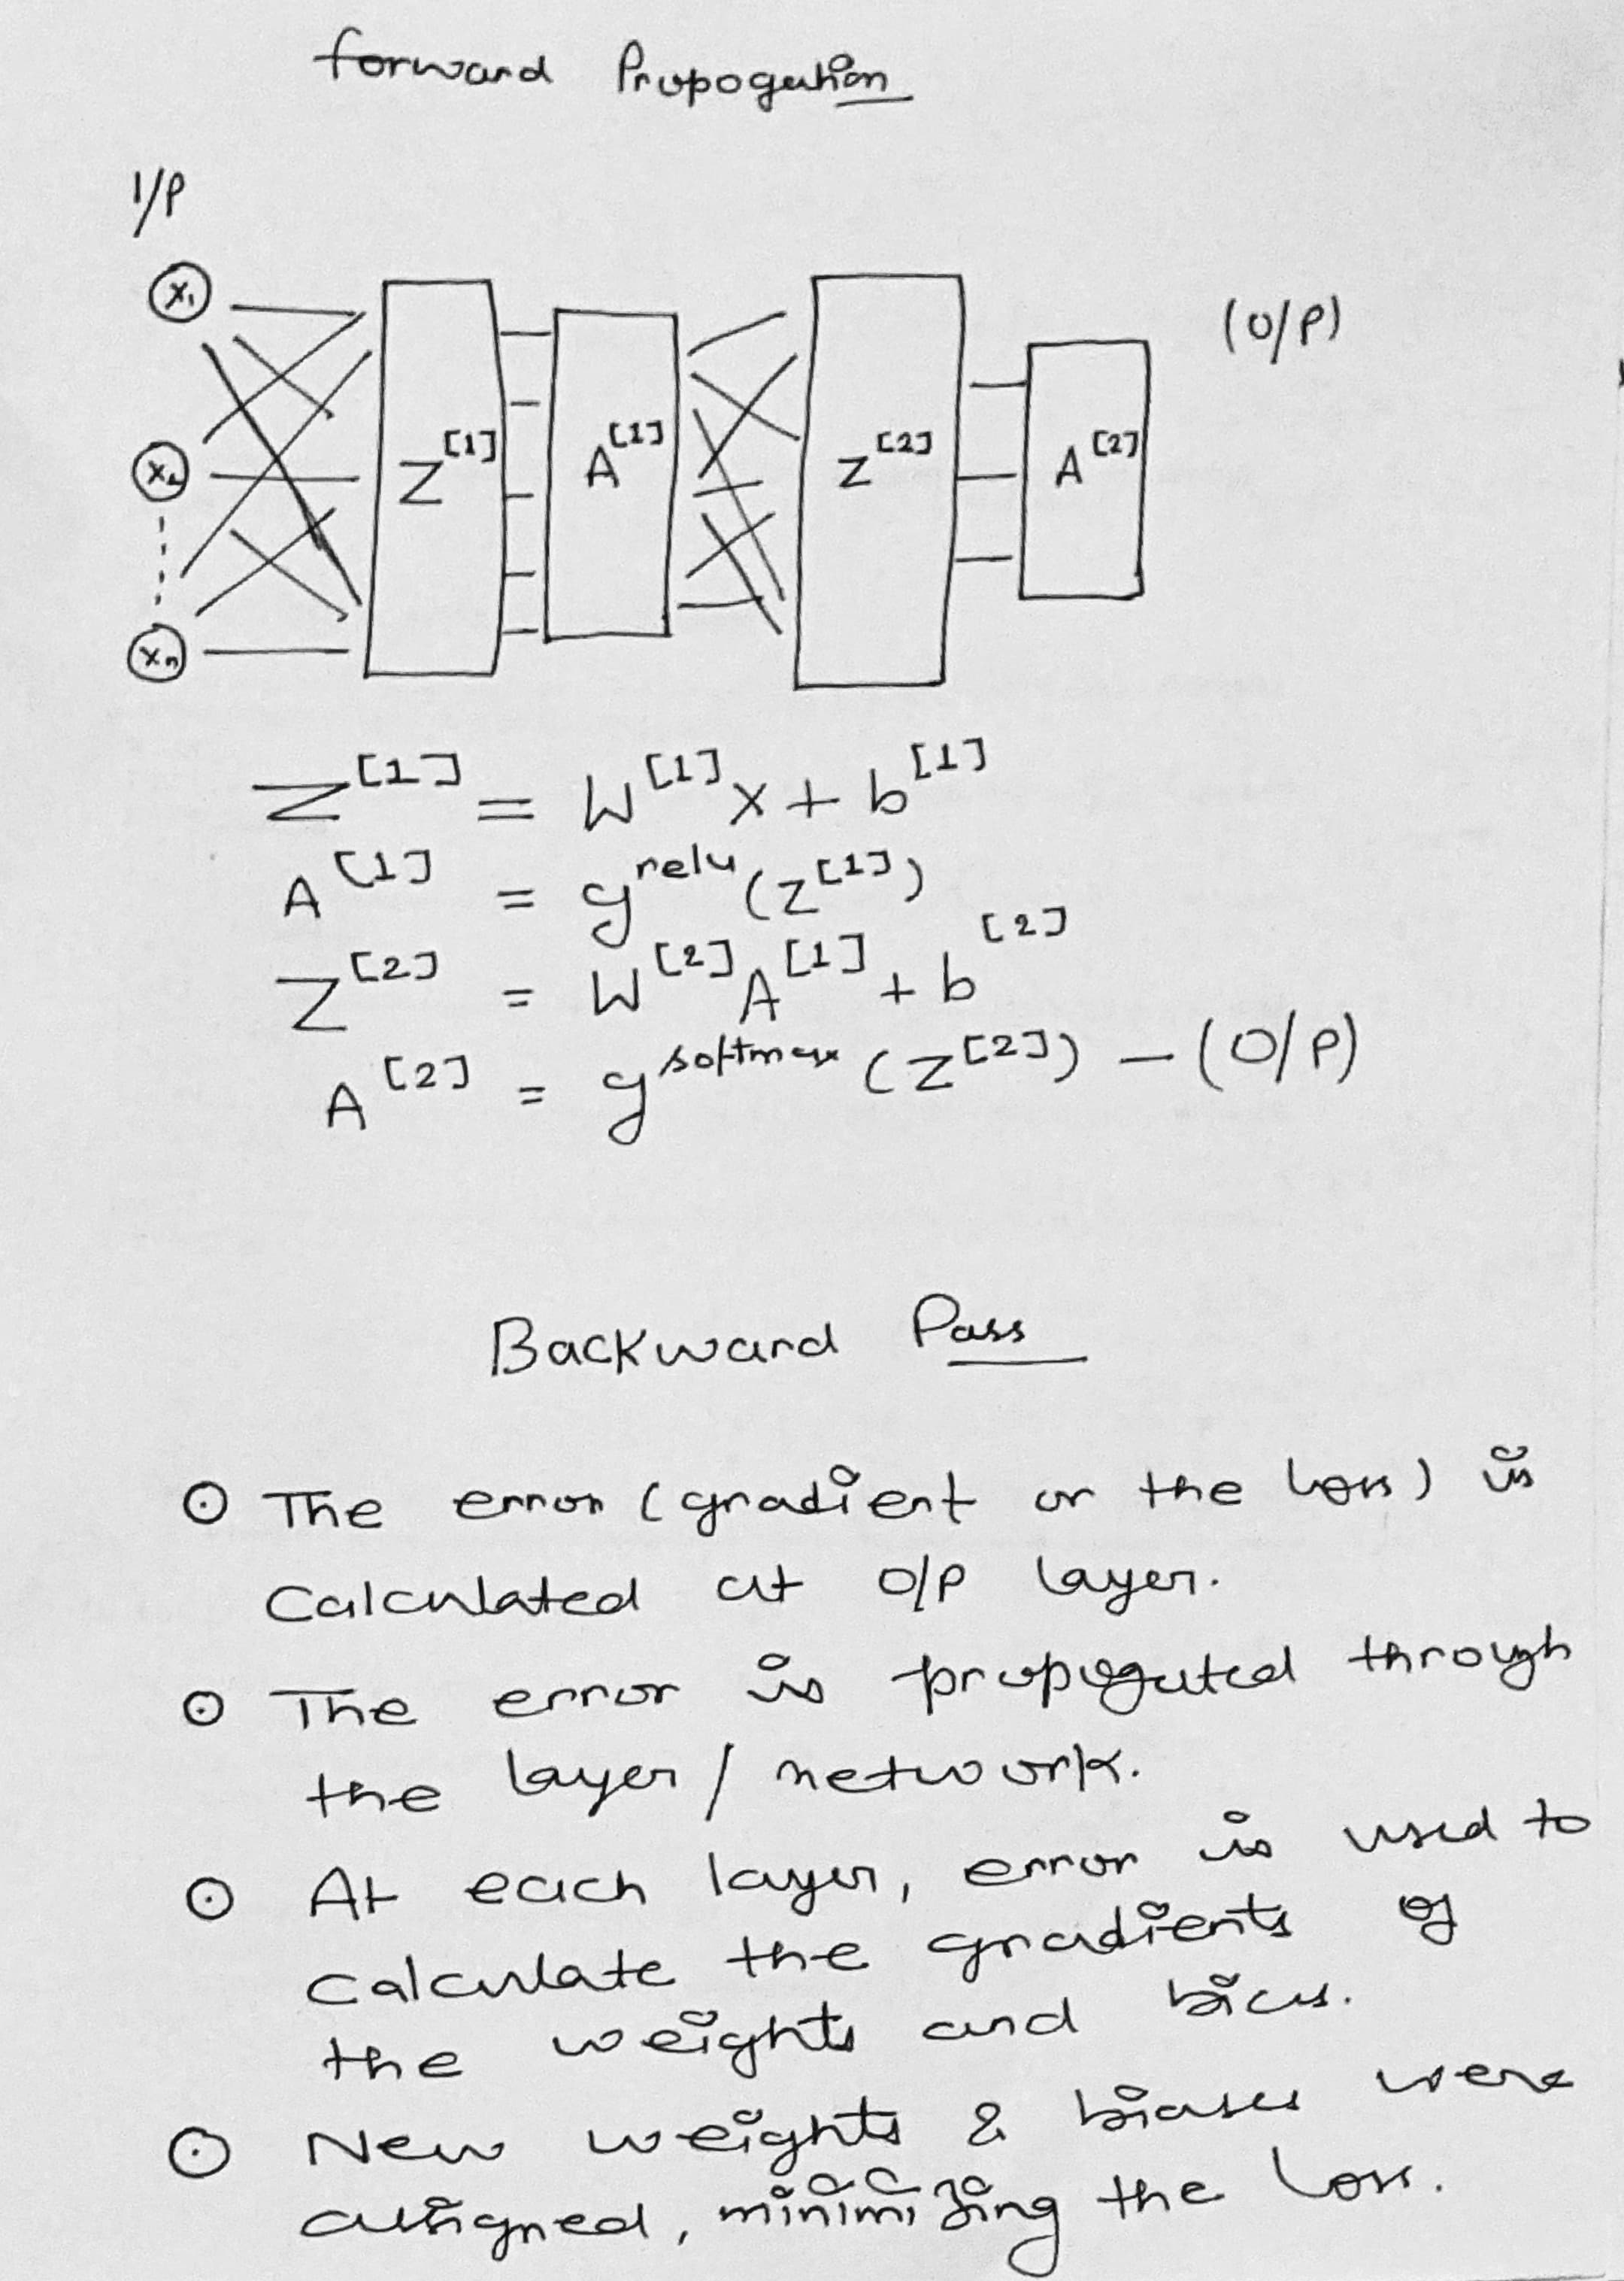 forward Propogation
I/P
(O/P)
X₁
X₂
Xₙ
Z[1]
A[1]
Z[2]
A[2]
Z[1] = W[1]X + b[1]
A[1] = g^relu(Z[1])
Z[2] = W[2]A[1] + b[2]
A[2] = g^softmax(Z[2]) – (O/P)
Backward Pass
⊙ The error (gradient or the loss) is
Calculated at O/P layer.
⊙ The error is propogated through
the layer / network.
⊙ At each layer, error is used to
Calculate the gradients of
the weights and bias.
⊙ New weights & biases were
assigned, minimizing the loss.